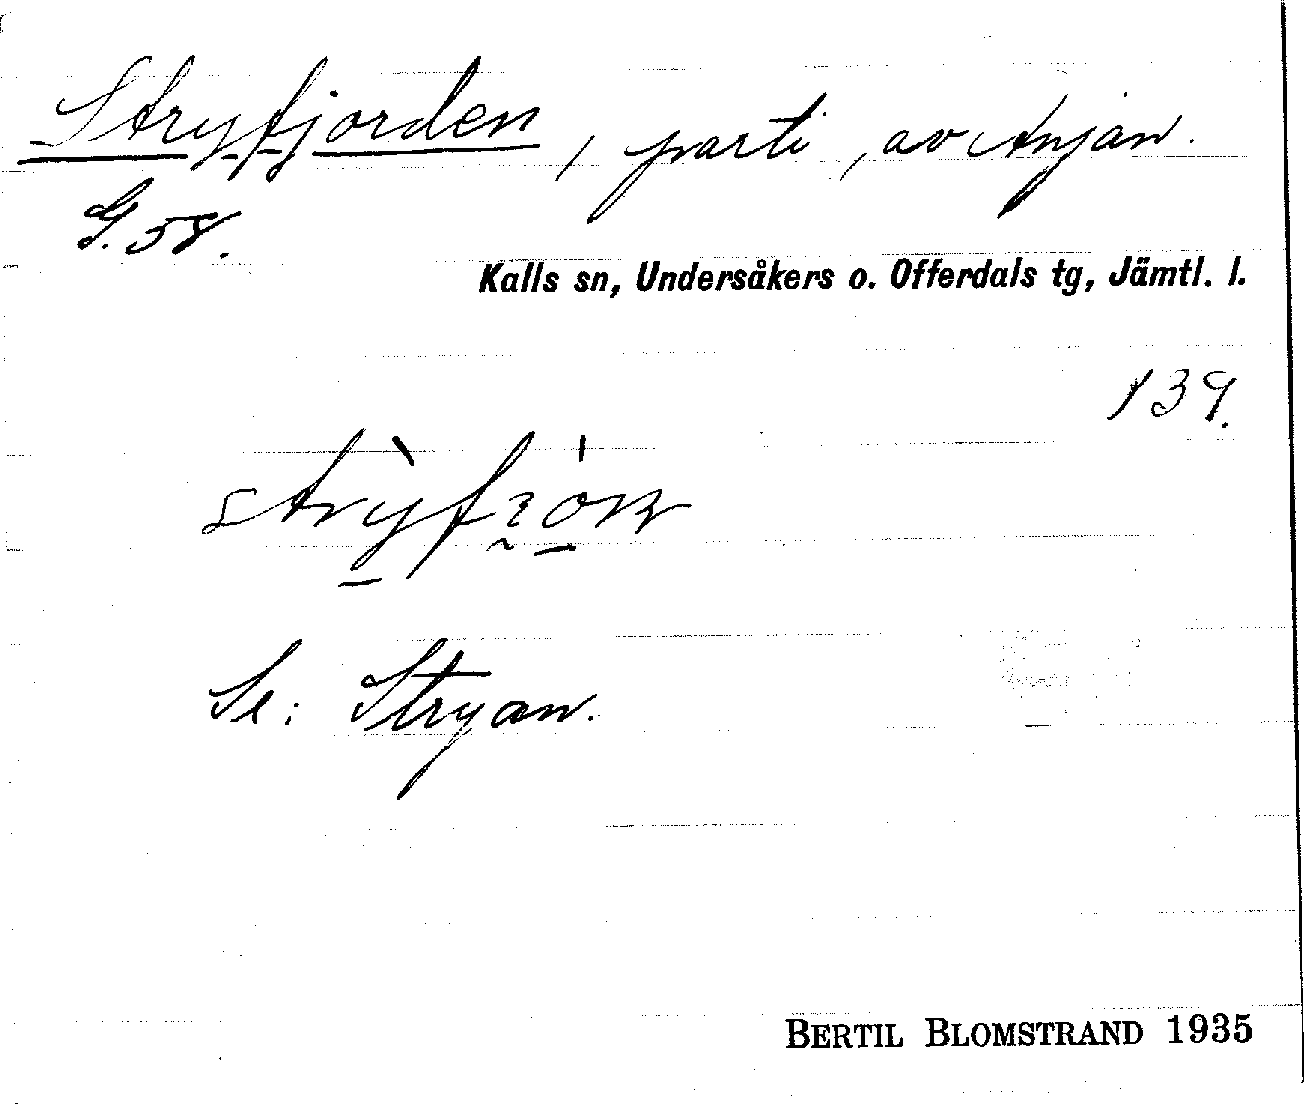 Stryfjorden, parti, av Anjan.
G. 58.
Kalls sn, Undersåkers o. Offerdals tg, Jämtl. l.
139.
Se: Stryan.
BERTIL BLOMSTRAND 1935